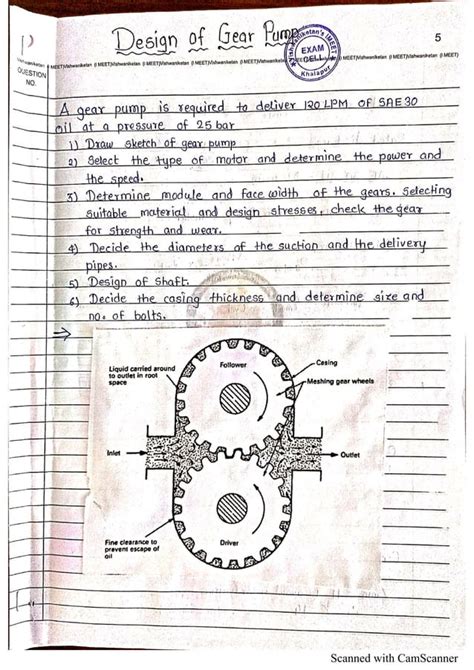 Design of Gear Pump
5
Vishwaniketan's iMEET
EXAM
CELL
Khalapur
(i MEET)Vishwaniketan (i MEET)Vishwaniketan (i MEET)Vishwaniketan (i MEET)Vishwaniketan (i MEET)Vishwaniketan (i MEET)
QUESTION
NO.
A gear pump is required to deliver 120 LPM OF SAE 30
oil at a pressure of 25 bar
1) Draw sketch of gear pump
2) Select the type of motor and determine the power and
the speed.
3) Determine module and face width of the gears. Selecting
suitable material and design stresses, check the gear
for strength and wear.
4) Decide the diameters of the suction and the delivery
pipes.
5) Design of shaft.
6) Decide the casing thickness and determine size and
no. of bolts.
Liquid carried around
to outlet in root
space
Follower
Casing
Meshing gear wheels
Inlet
Outlet
Fine clearance to
prevent escape of
oil
Driver
Scanned with CamScanner